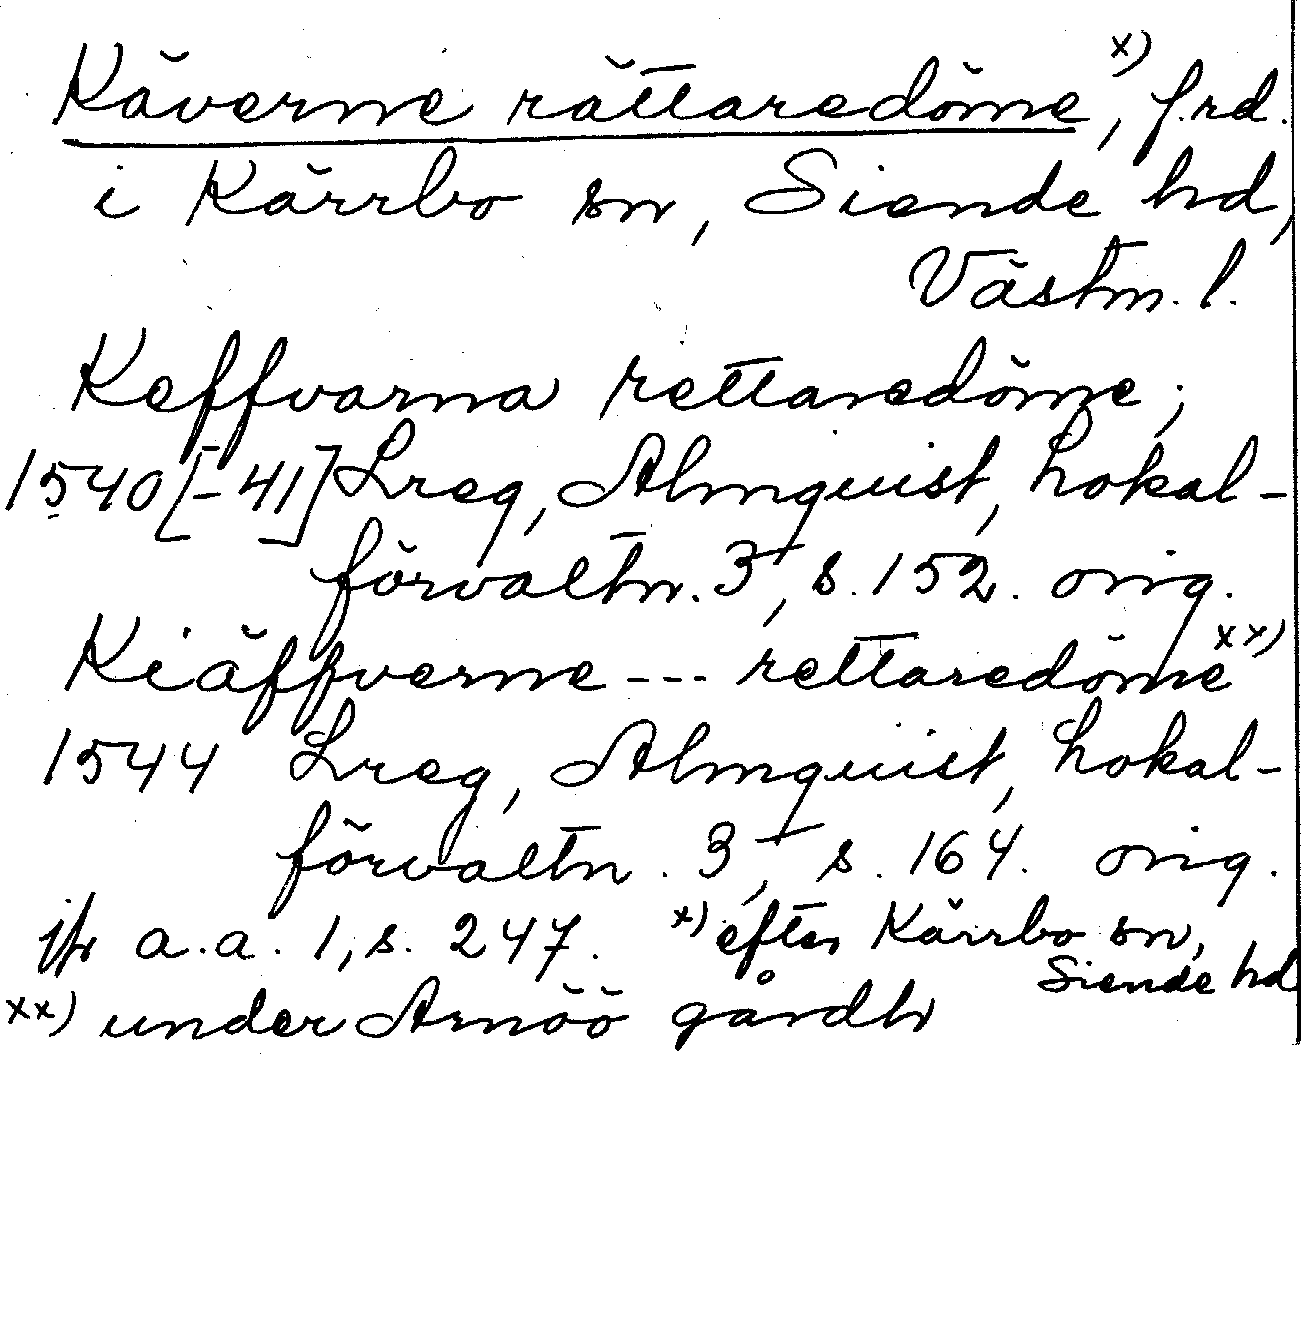 Käverne rättaredöme x), f.rd.
i Kärrbo sn, Siende hd,
Västm. l.
Keffvarna rettaredöme;
1540[-41] Lreg, Almquist, Lokal-
förvaltn. 3, s. 152. orig.
Kiäffverne --- rettaredöme xx)
1544 Lreg, Almquist, Lokal-
förvaltn. 3, s. 164. orig.
jfr a.a. 1, s. 247. x) efter Kärrbo sn,
Siende hd
xx) under Arnöö gårdh